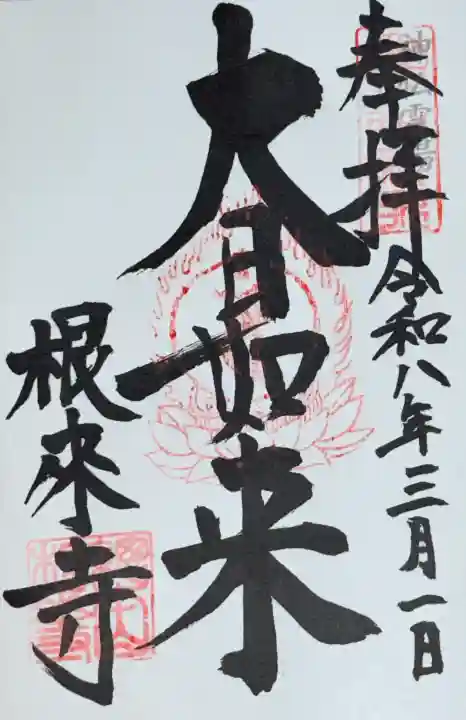 奉拝
令和八年三月一日
大日如来
根来寺